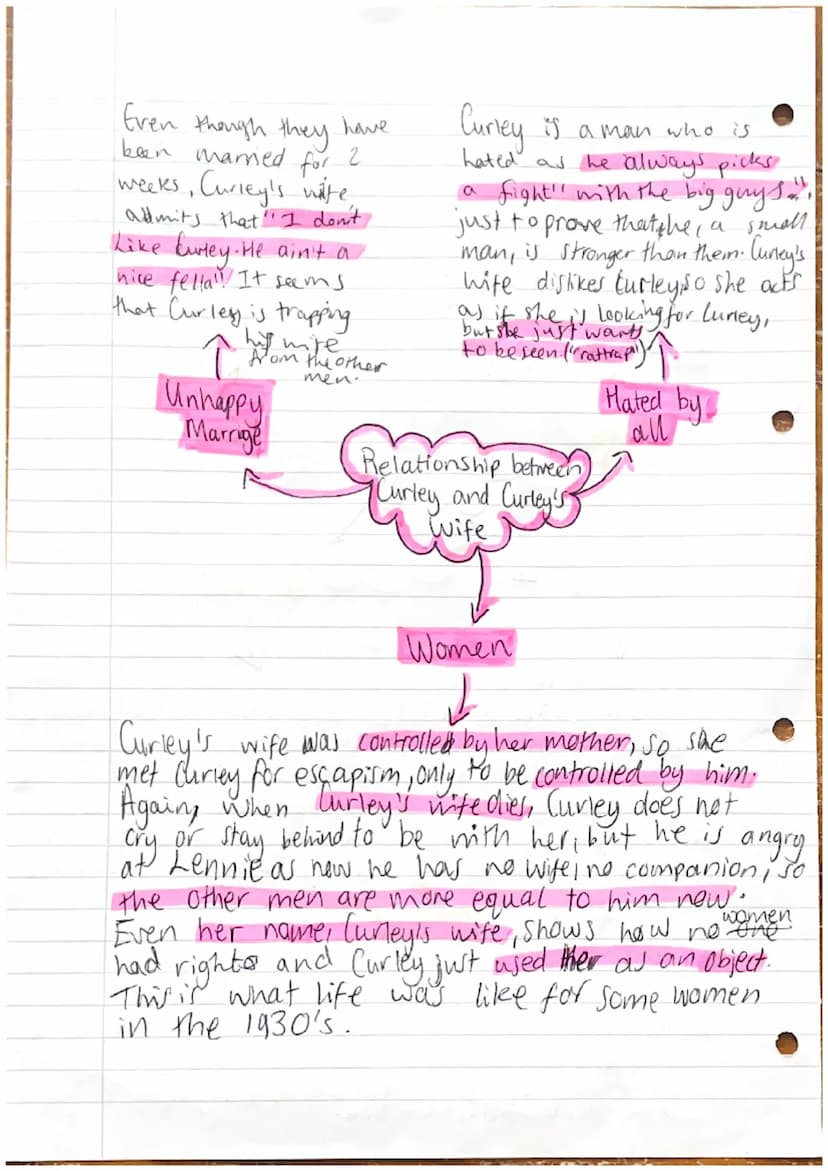 Even though they have
been married for 2
weeks, Curley's wife
admits that "I don't
Like Curley. He ain't a
nice fella". It seems
that Curley is trapping
his wife
from the other
men.
Unhappy
Marrige
Curley is a man who is
hated as he "always picks
a fight" with the big guys"
just to prove that he, a small
man, is stronger than them. Curley's
wife dislikes Curley, so she acts
as if she is looking for Curley,
but she just wants
to be seen ("rattrap")
Hated by
all
Relationship between
Curley and Curley's
Wife
Women
Curley's wife was controlled by her mother, so she
met Curley for escapism, only to be controlled by him.
Again, when Curley's wife dies, Curley does not
cry or stay behind to be with her, but he is angry
at Lennie as now he has no wife, no companion, so
the other men are more equal to him now.
Even her name, Curley's wife, shows how no women
had rights and Curley just used her as an object.
This is what life was like for some women
in the 1930's.